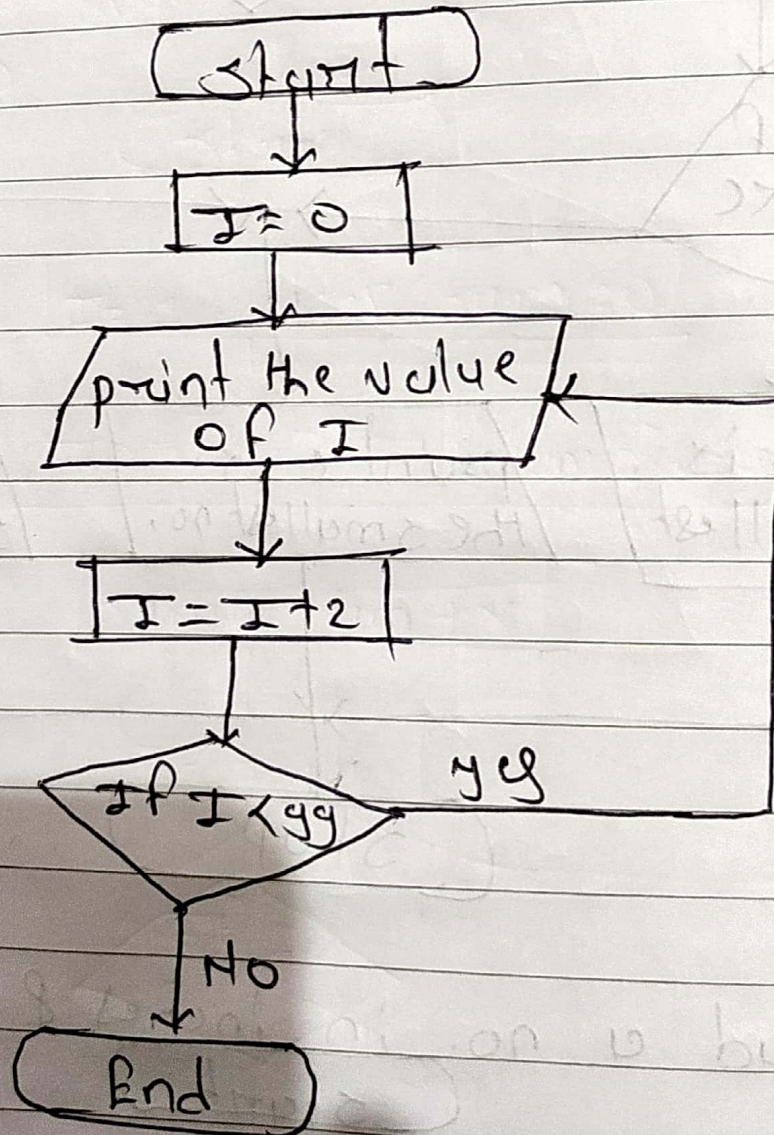 Start
I = 0
print the value
of I
I = I + 2
If I < 99
yes
NO
End